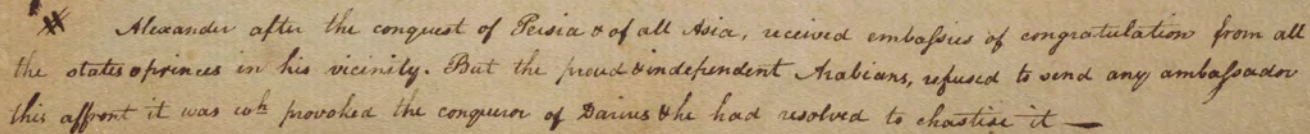 * Alexander after the conquest of Persia & of all Asia, received embaſsies of congratulation from all
the states & princes in his vicinity. But the proud & independent Arabians, refused to send any ambaſsador
this affront it was wh provoked the conqueror of Darius & he had resolved to chastise it —